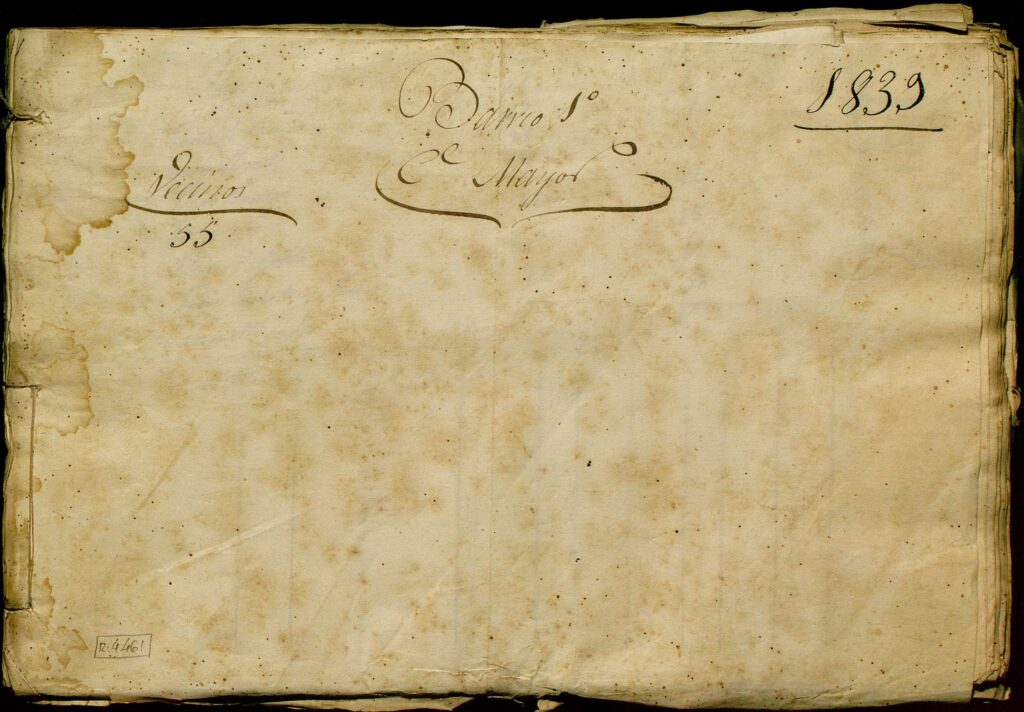 1839
Barrio 1º
Cᵉ Mayor
Vecinos
55
R. 4461